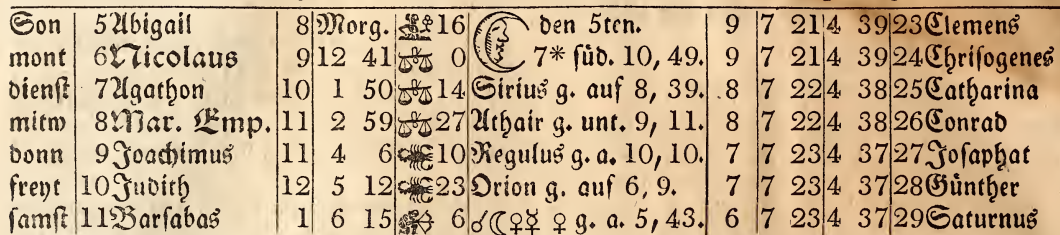 Son 5 Abigail 8 Morg. 16 den 5ten. 9 7 21 4 39 23 Clemens
mont 6 Nicolaus 9 12 41 ♎ 0 7* süd. 10, 49. 9 7 21 4 39 24 Chrisogenes
dienst 7 Agathon 10 1 50 ♎ 14 Sirius g. auf 8, 39. 8 7 22 4 38 25 Catharina
mitw 8 Mar. Emp. 11 2 59 ♎ 27 Athair g. unt. 9, 11. 8 7 22 4 38 26 Conrad
donn 9 Joachimus 11 4 6 ♏ 10 Regulus g. a. 10, 10. 7 7 23 4 37 27 Josaphat
freyt 10 Judith 12 5 12 ♏ 23 Orion g. auf 6, 9. 7 7 23 4 37 28 Günther
samst 11 Barsabas 1 6 15 ♐ 6 ☌☾♀☿ ♀ g. a. 5, 43. 6 7 23 4 37 29 Saturnus